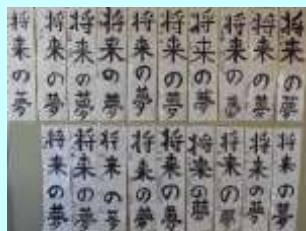 将来の夢
将来の夢
将来の夢
将来の夢
将来の夢
将来の夢
将来の夢
将来の夢
将来の夢
将来の夢
将来の夢
将来の夢
将来の夢
将来の夢
将来の夢
将来の夢
将来の夢
将来の夢
将来の夢